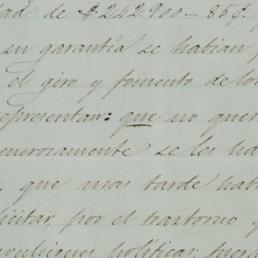 dad de $242.900-85¢.
en garantía se habían
el giro y fomento de los
representan: que no quer
enerosamente se les ha
que mas tarde hab
icitar, por el trastorno y
vulsiones politicas, fuera